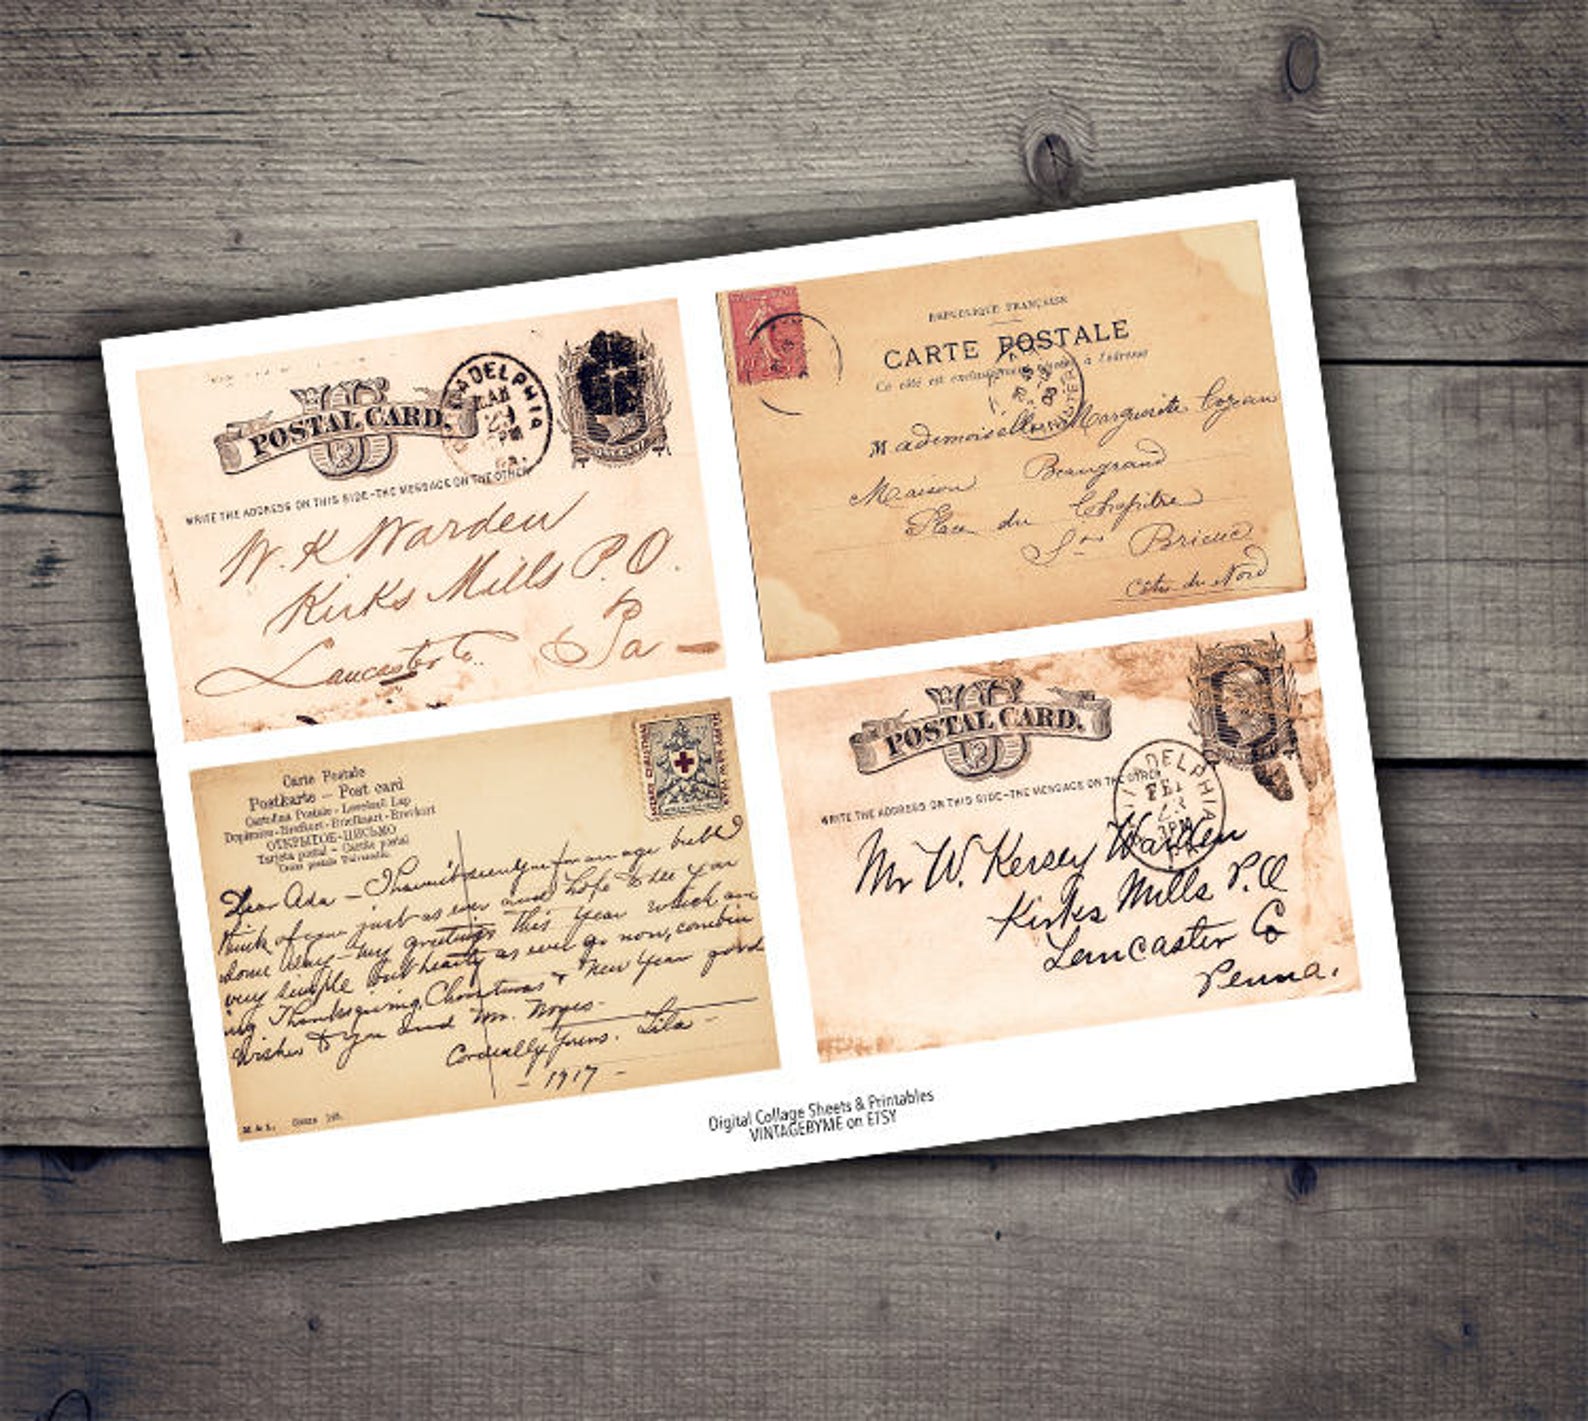 POSTAL CARD.
ADELPHIA
PM
PA.
WRITE THE ADDRESS ON THIS SIDE-THE MESSAGE ON THE OTHER
W. K Warden
Kirks Mills P.O.
Lancaster Co.
Pa
REPUBLIQUE FRANÇAISE
CARTE POSTALE
Ce côté est exclusivement à l'adresse
Mademoiselle Marguerite
Maison Beaugrand
Place du Chapitre
St Brieuc
Côtes du Nord
Carte Postale
Postkarte - Post card
Cartolina Postale - Levelező Lap
ОТКРЫТОЕ-ПИСЬМО
Tarjeta postal
MERRY CHRISTMAS
HAPPY NEW YEAR
Dear Ada - I haven't seen you for an age but I
think of you just as ever and hope to see you
some day - my greetings this year which are
very simple but hearty as ever go now, combin
ing Thanksgiving, Christmas & New Year good
wishes to you and Mr. Noyes-
Cordially yours. Lila -
- 1917 -
POSTAL CARD.
WRITE THE ADDRESS ON THIS SIDE-THE MESSAGE ON THE OTHER
DELPHIA
FEB
23
3PM
Mr W. Kersey Warden
Kirks Mills P.O
Lancaster Co
Penna.
Digital Collage Sheets & Printables
VINTAGEBYME on ETSY